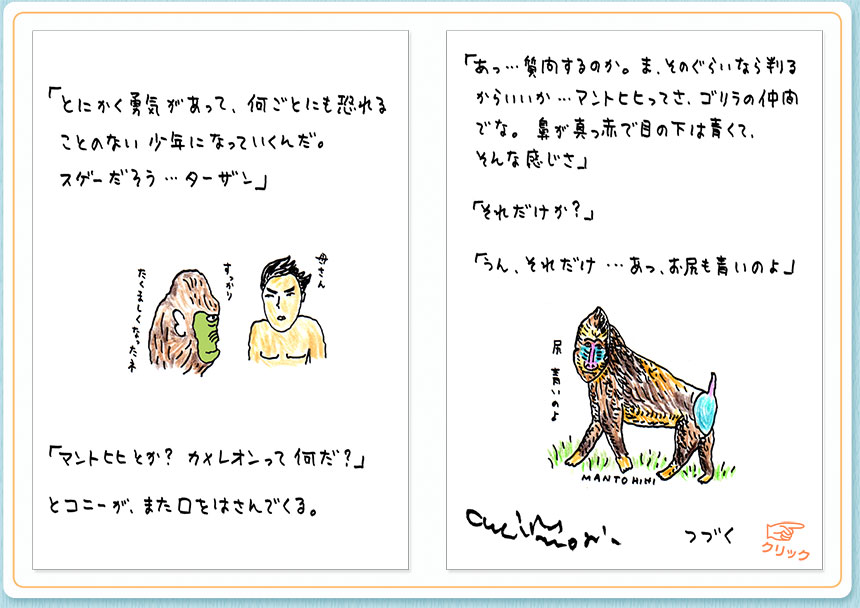 「とにかく勇気があって、何ごとにも恐れる
ことのない少年になっていくんだ。
スゲーだろう…ターザン」
母さん
すっかり
たくましくなったネ
「マントヒヒとか？カメレオンって何だ？」
とコニーが、また口をはさんでくる。
「あっ…質問するのか。ま、そのぐらいなら判る
からいいか…マントヒヒってさ、ゴリラの仲間
でな。鼻が真っ赤で目の下は青くて、
そんな感じさ」
「それだけか？」
「うん、それだけ…あっ、お尻も青いのよ」
尻青いのよ
MANTOHIHI
つづく
クリック